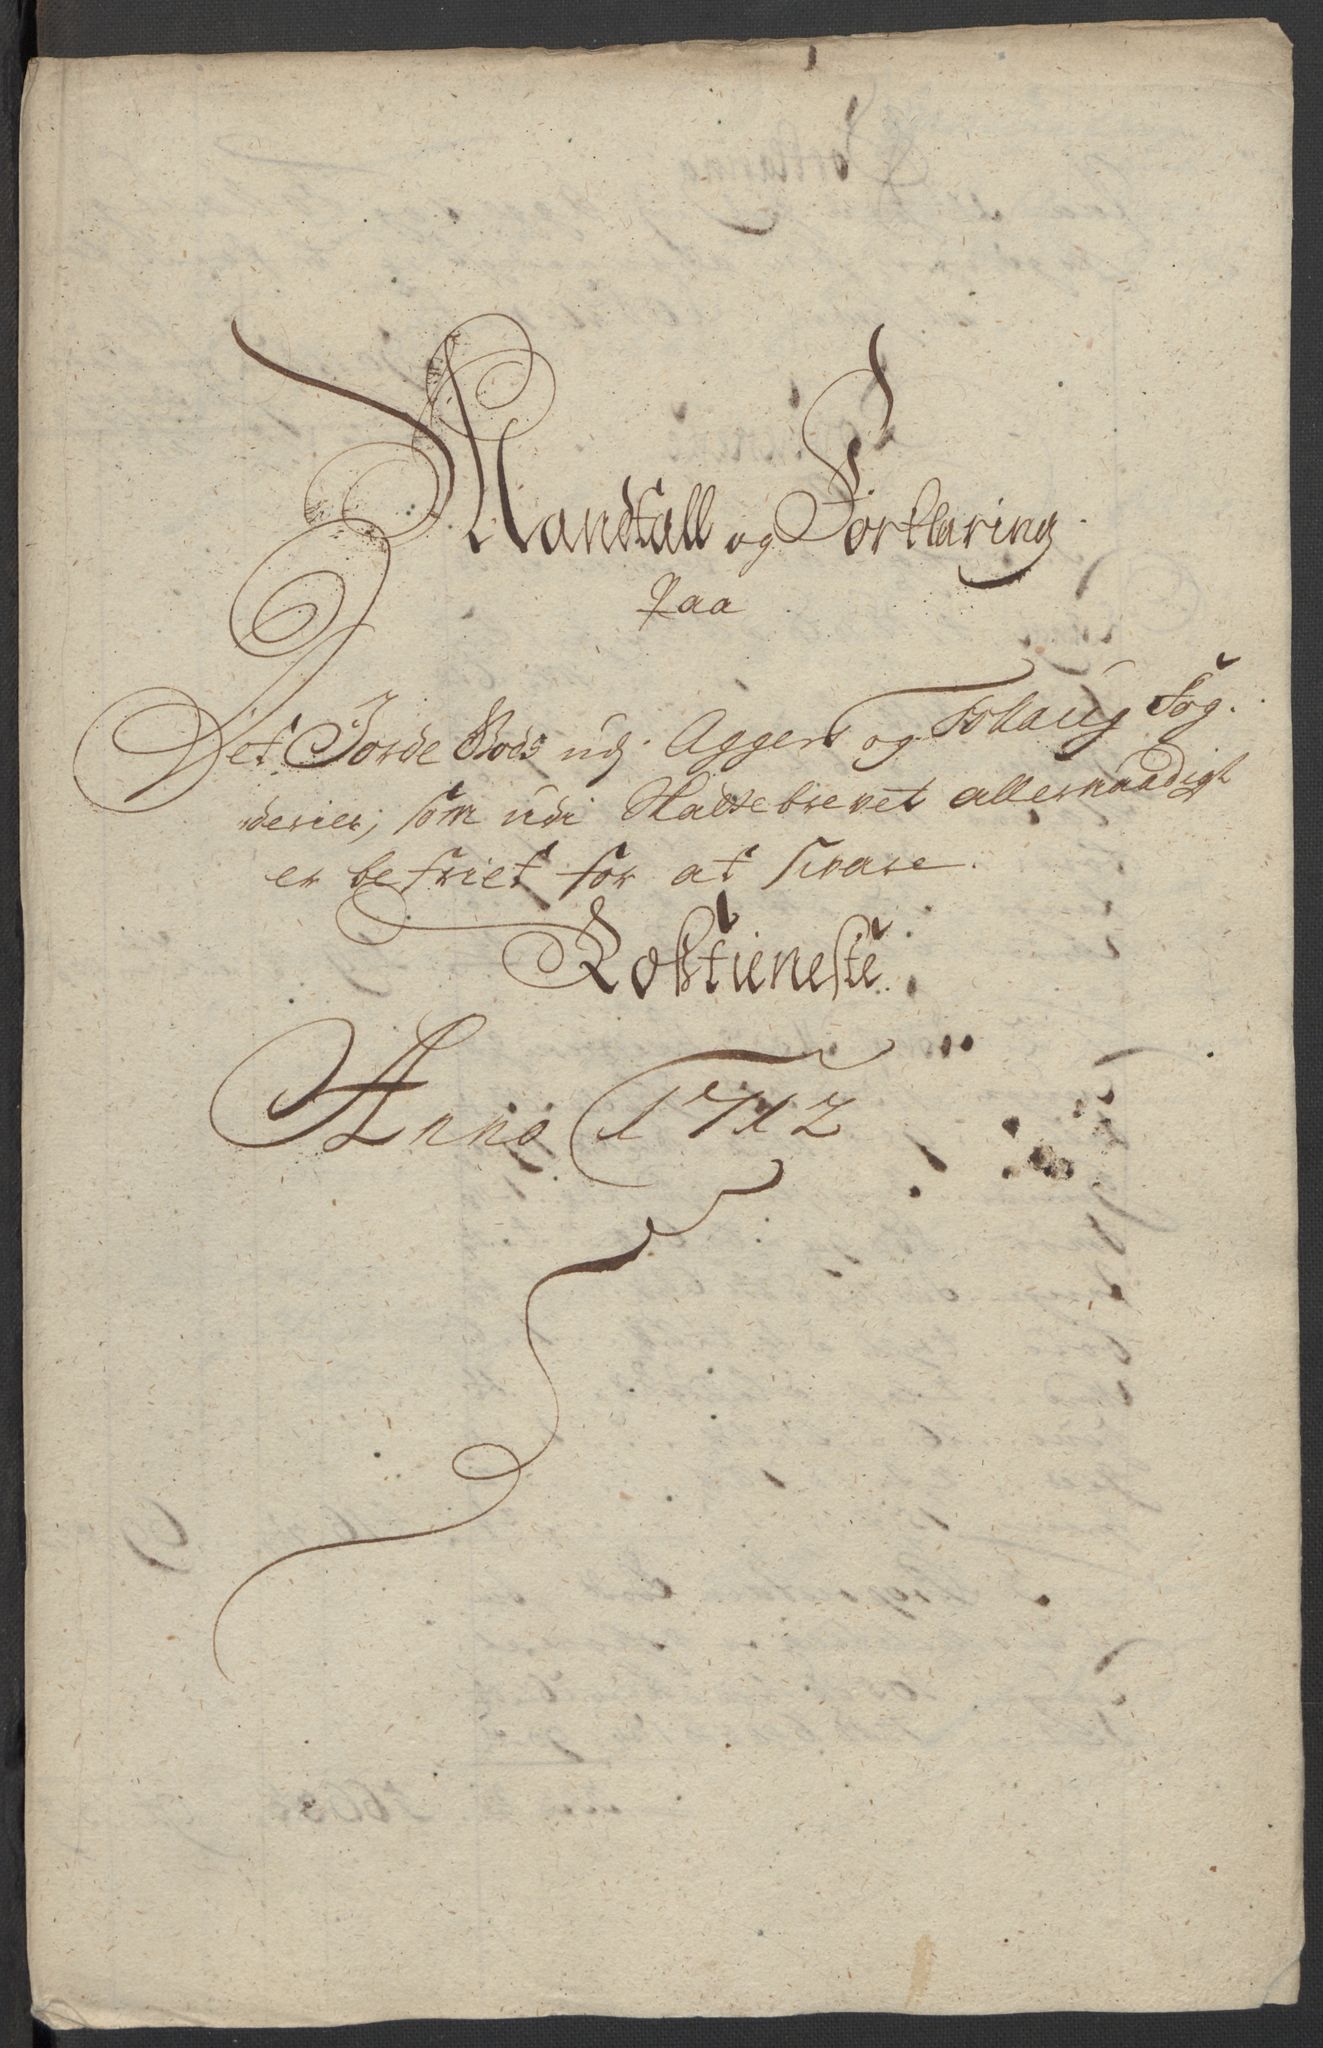 Mandtall og Forklaring
Paa
Det Jorde Gods udj Aggers og Follaug Fog-
derier, som udi Skattebrevet allernaadigst
er befriet for at svare
Rosztieneste
Anno 1712